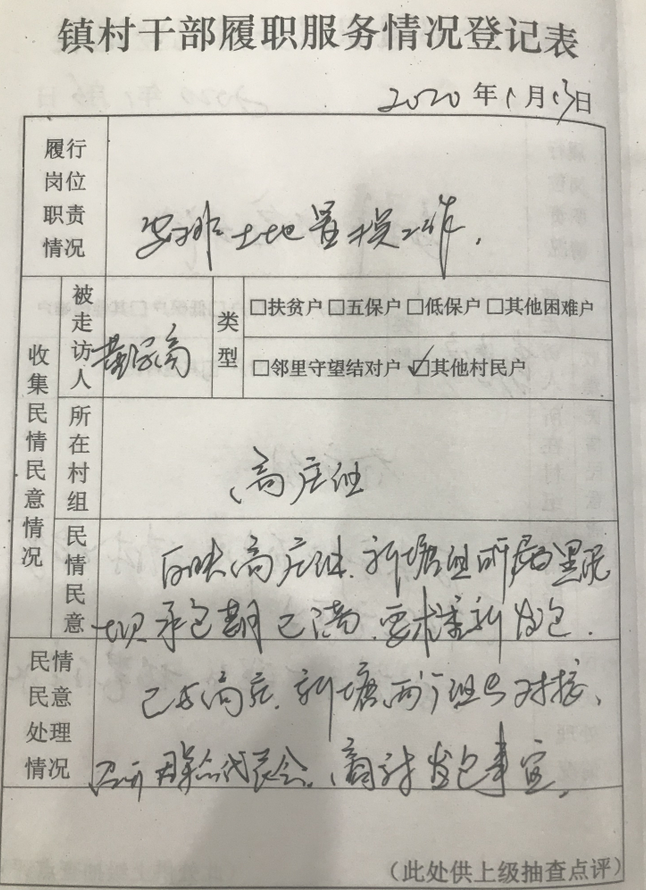 镇村干部履职服务情况登记表
2020年1月13日
履行岗位职责情况
安排土地置换工作.
收集民情民意情况
被走访人
类型
□扶贫户 □五保户 □低保户 □其他困难户
□邻里守望结对户 ☑其他村民户
所在村组
高庄组
民情民意
反映高庄组、新塘组所属黑泥
坝承包期已满.要求重新发包.
民情民意处理情况
已与高庄、新塘两个组长对接、
召开群众代表会、商讨发包事宜.
(此处供上级抽查点评)